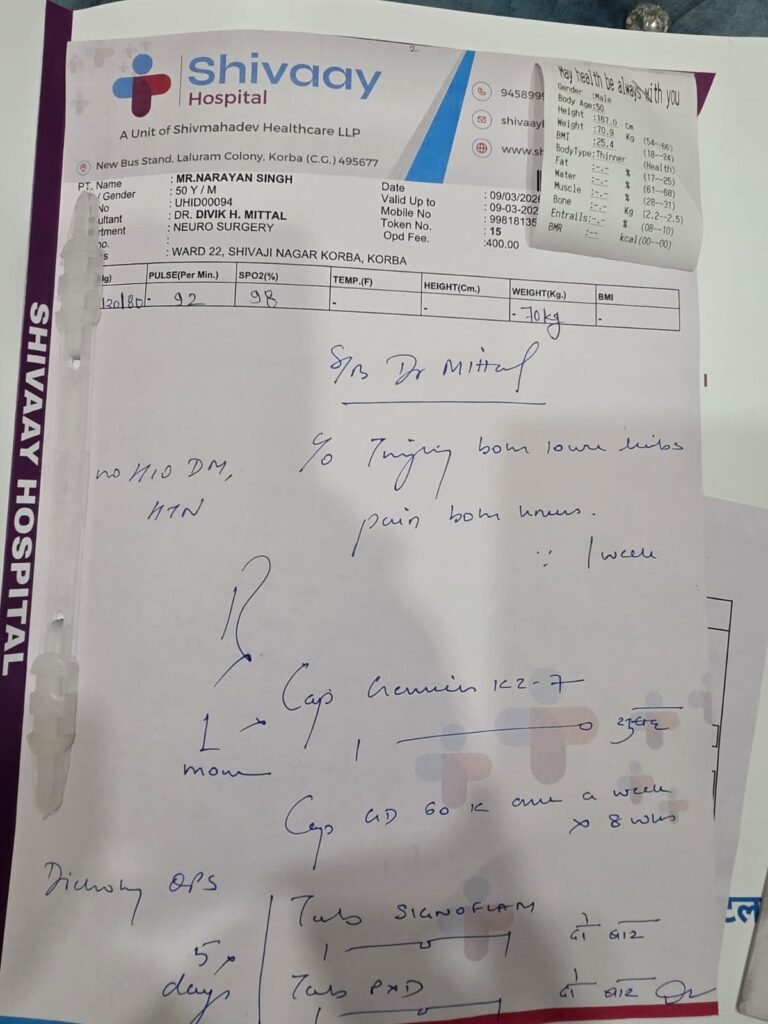 2
Shivaay
Hospital
A Unit of Shivmahadev Healthcare LLP
New Bus Stand, Laluram Colony, Korba (C.G.) 495677
945899
shivaayl
www.sh
May health be always with you
Gender :Male
Body Age:50
Height :167.0 Cm
Weight :70.9 Kg (54--66)
BMI :25.4 (18--24)
BodyType:Thinner (Health)
Fat :-.- % (17--25)
Water :-.- % (61--68)
Muscle :-.- % (28--31)
Bone :-.- Kg (2.2--2.5)
Entrails:-.- % (08--10)
BMR :-- kcal(00--00)
PT. Name : MR.NARAYAN SINGH
/ Gender : 50 Y / M
No : UHID00094
ultant : DR. DIVIK H. MITTAL
rtment : NEURO SURGERY
no. :
s : WARD 22, SHIVAJI NAGAR KORBA, KORBA
Date : 09/03/2026
Valid Up to : 09-03-202
Mobile No : 99818135
Token No. : 15
Opd Fee. :400.00
PULSE(Per Min.) SPO2(%) TEMP.(F) HEIGHT(Cm.) WEIGHT(Kg.) BMI
120/80 - 92 98 - - - 70kg -
S/B Dr Mittal
no H/O DM,
HTN
c/o Tingling both lower limbs
pain both knees.
1 week
Cap K2-7
1
1
Cap 60 K one a week
x 8 wks
Tab SIGNOFLAM
1 1
5 x
days
Tab PXD
1 1
SHIVAAY HOSPITAL